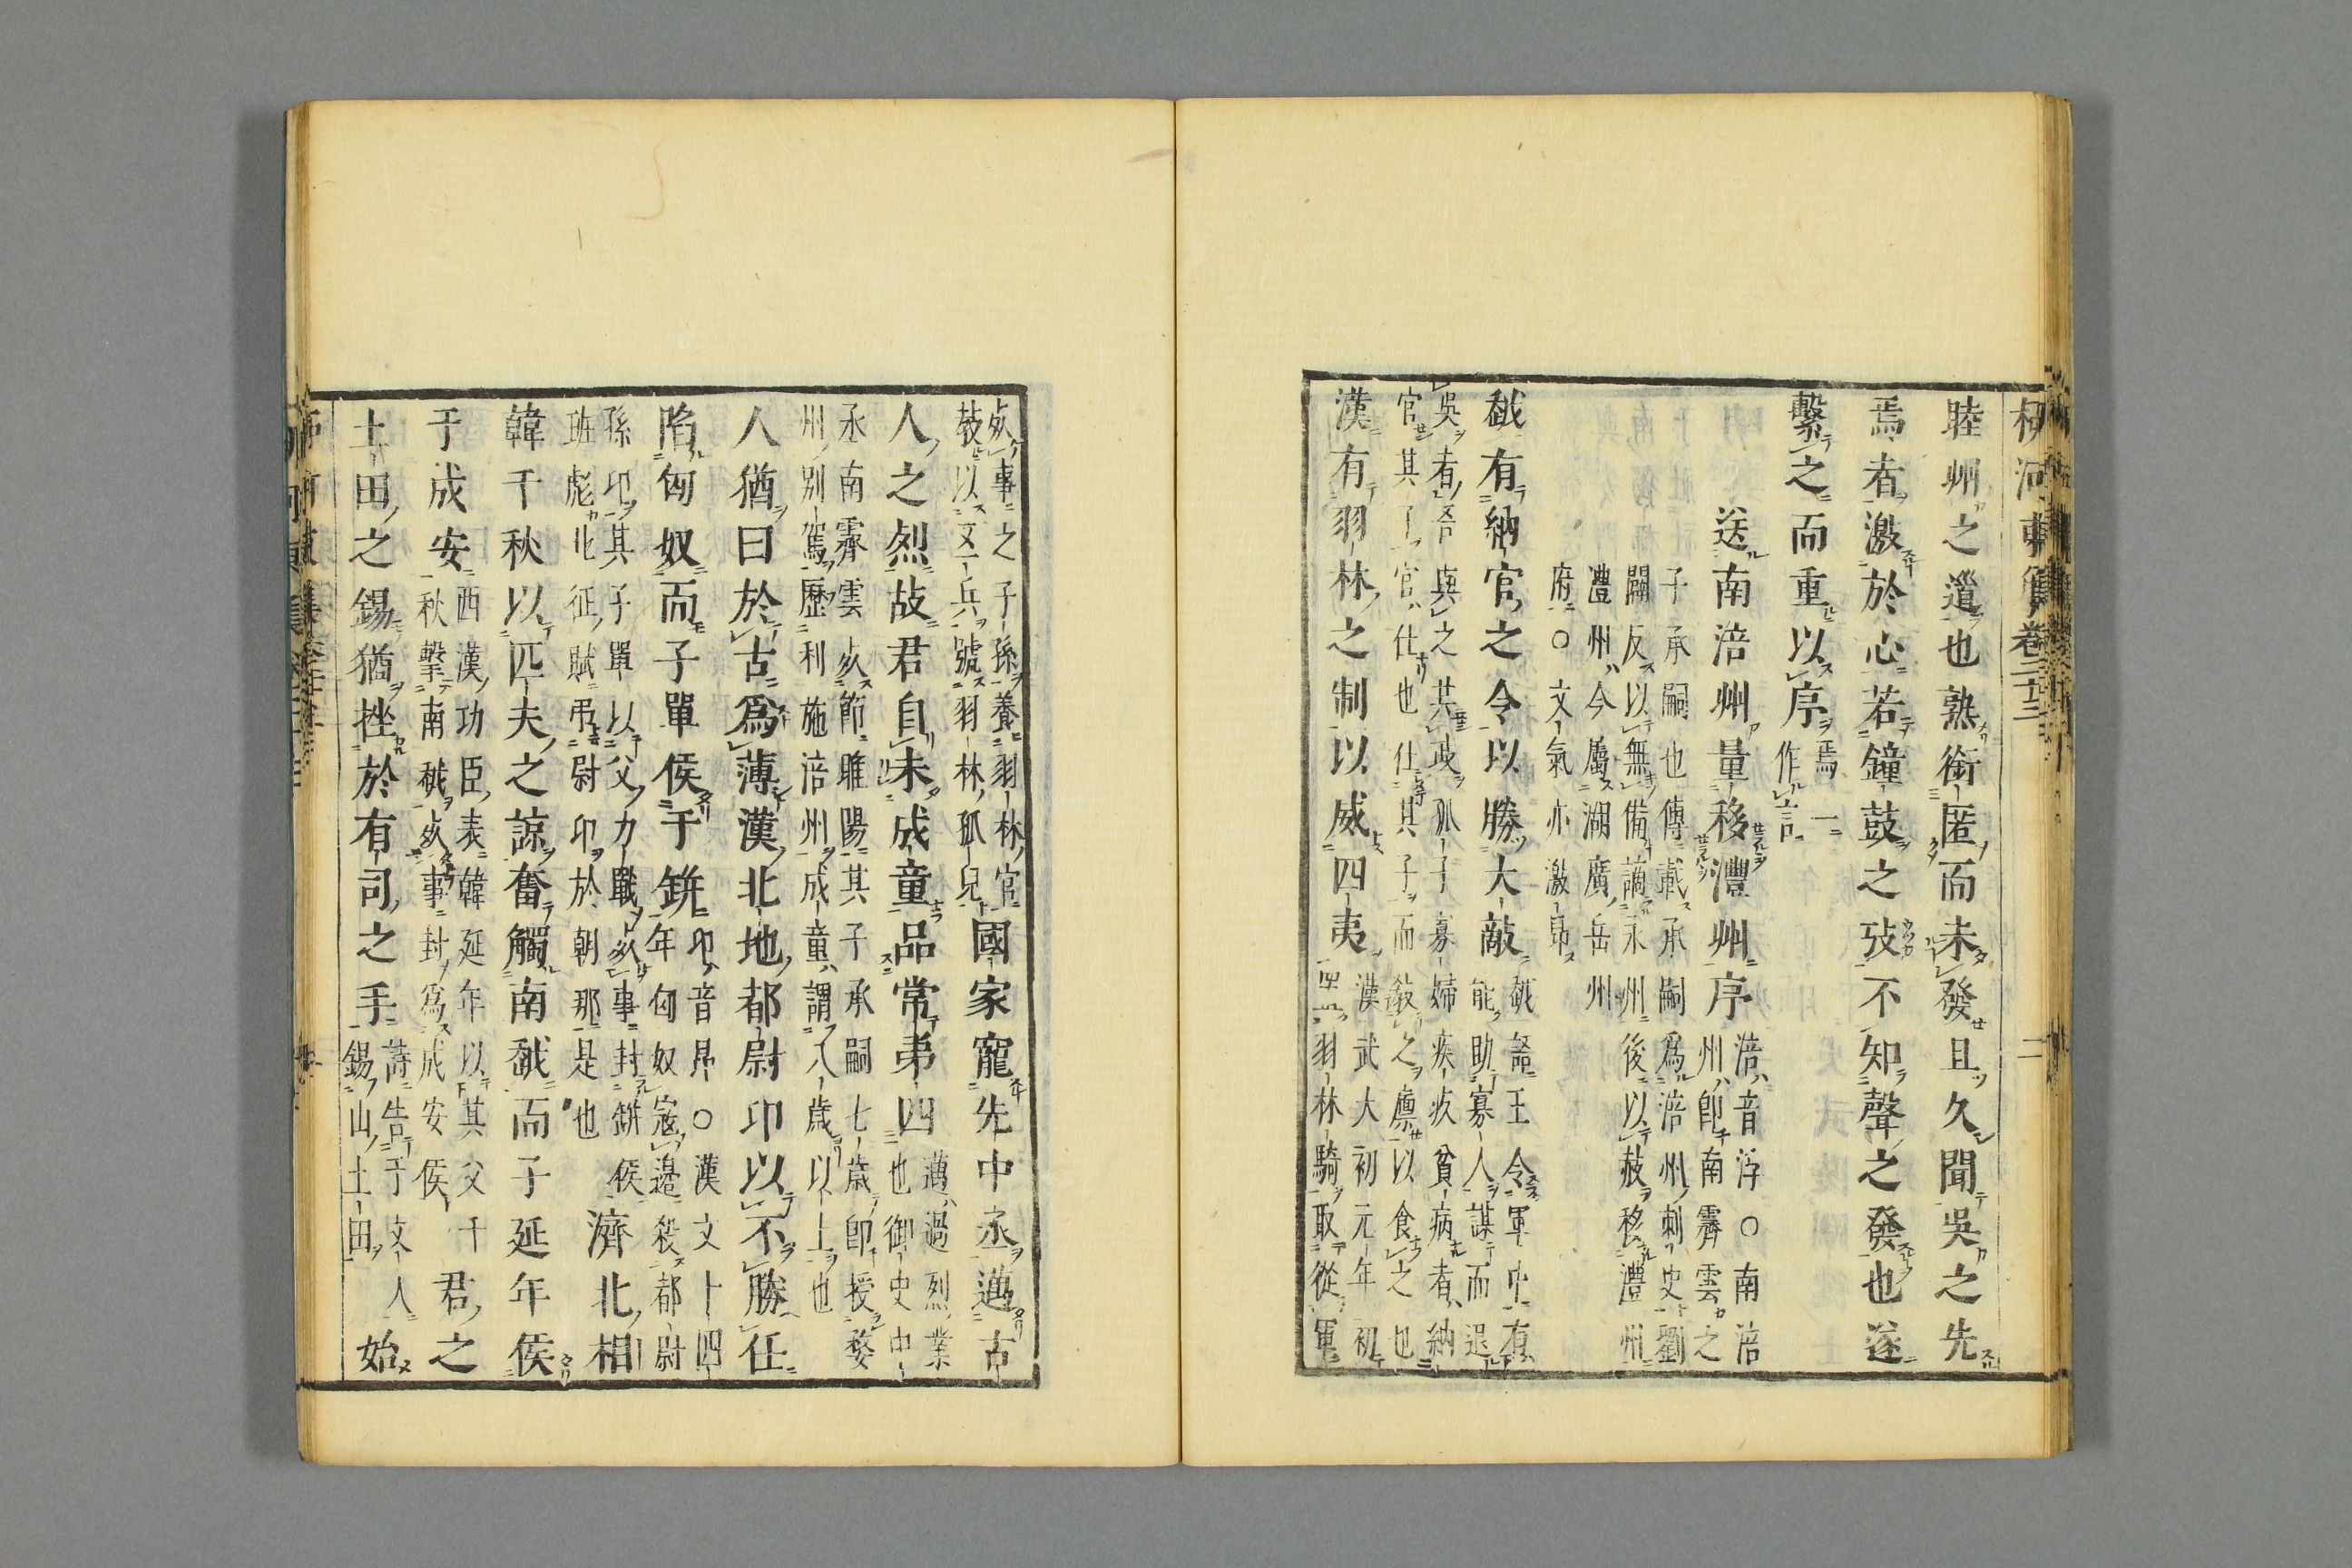 柳河東集卷二十三 二
睦州之道也熟銜匿而未發且久聞吳之先
焉者激於心若鐘鼓之攷不知聲之發也遂
繫之而重以序焉一作言
送南涪州量移澧州序涪音浮○南涪州卽南霽雲之
子承嗣也傳載承嗣爲涪州刺史劉
闢反以無備謫永州後以赦移澧州
澧州今屬湖廣岳州
府○文氣亦激昂
越有納官之令以勝大敵越語王令軍中有能助寡人謀而退
吳者吾與之共政孤子寡婦疾疹貧病者納
官其子官仕也仕其子而敎之廩以食之也
漢有羽林之制以威四夷漢武大初元年初置羽林騎取從軍
死事之子孫養羽林官
敎以五兵號羽林孤兒國家寵先中丞邁古
人之烈故君自未成童品常第四邁過烈業也御史中
丞南霽雲死節睢陽其子承嗣七歲卽授婺
州別駕歷利施涪州成童謂八歲以上也
人猶曰於古爲薄漢北地都尉卬以不勝任
陷匈奴而子單侯于缾卬音昂○漢文十四年匈奴寇邊殺都尉
孫卬其子單以父力戰死事封缾侯
班彪北征賦弔尉卬於朝那是也濟北相
韓千秋以匹夫之諒奮觸南越而子延年侯
于成安西漢功臣表韓延年以其父千秋擊南越死事封爲成安侯君之
土田之錫猶挫於有司之手詩告于文人錫山土田始
柳河東集卷二十三